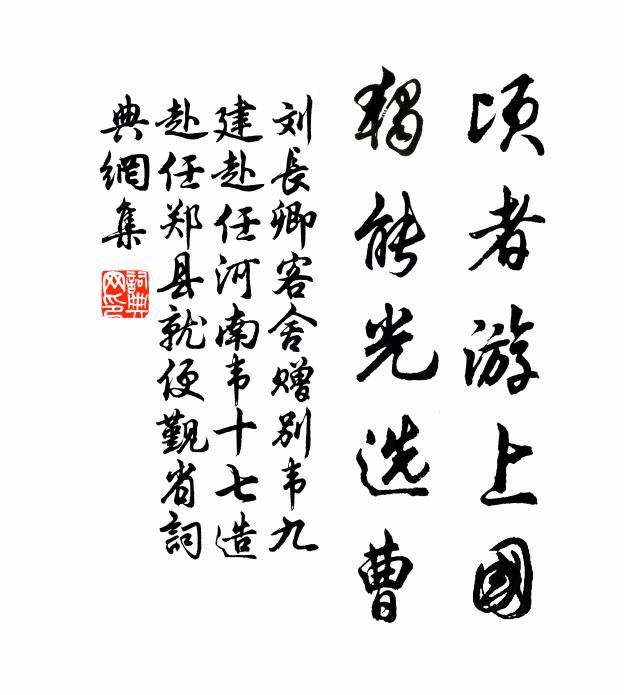 顷者游上國
独能光选曹
刘長卿客舍赠别韦九
建赴任河南韦十七造
赴任郑县就便觐省詞
典網集
詞典
网印